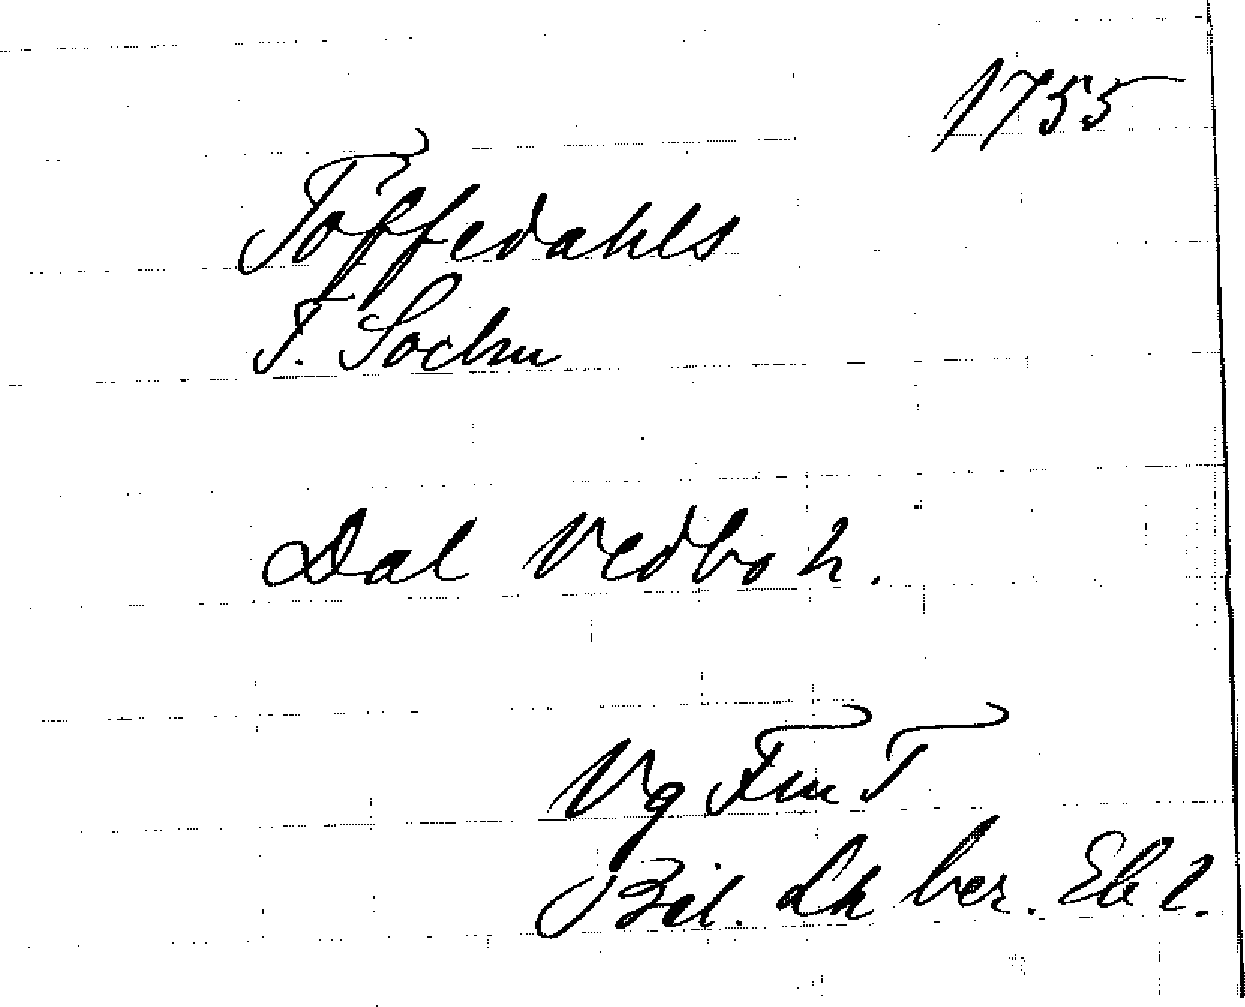 1755
Töffedahls
T. Sochn
Dal Vedbo h.
Vg Fm T
Bil. Lh ber. Eb l.